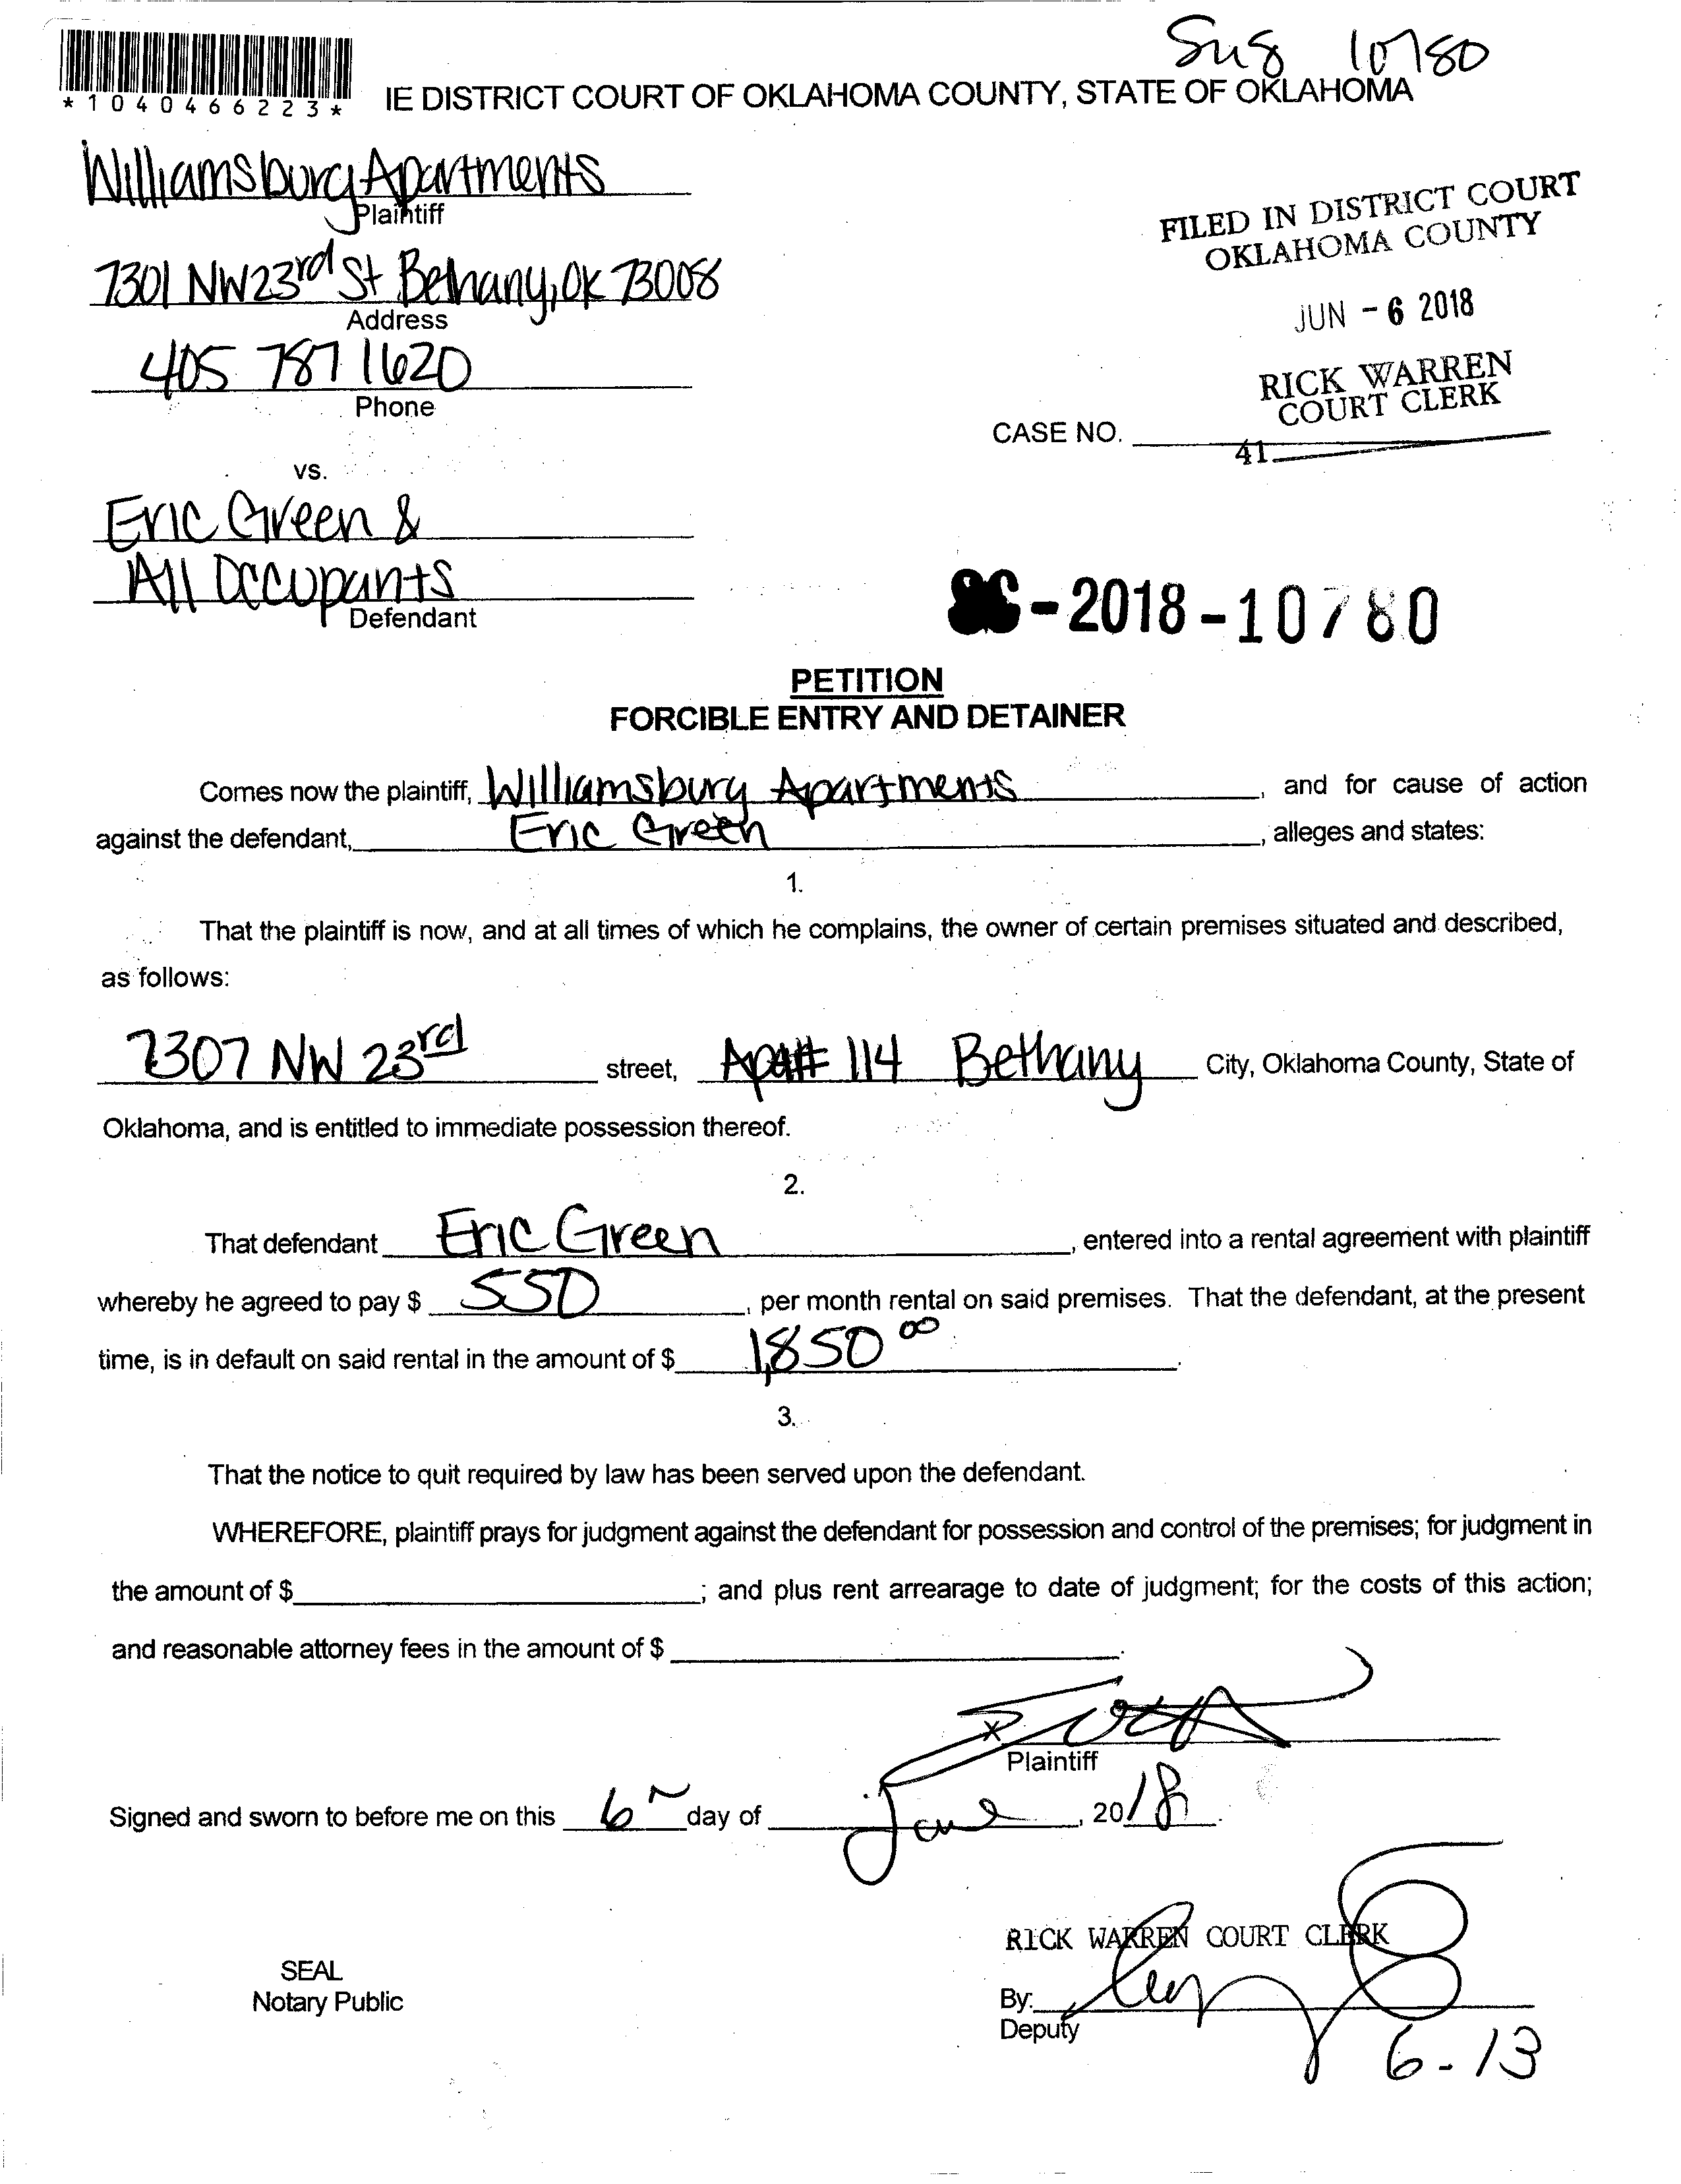 *1040466223*
10780
IE DISTRICT COURT OF OKLAHOMA COUNTY, STATE OF OKLAHOMA
Williamsburg Apartments
Plaintiff
7301 NW 23rd St Bethany, OK 73008
Address
405 787 1620
Phone
FILED IN DISTRICT COURT
OKLAHOMA COUNTY
JUN - 6 2018
RICK WARREN
COURT CLERK
CASE NO.
41
vs.
Eric Green &
All Occupants
Defendant
SC-2018-10780
PETITION
FORCIBLE ENTRY AND DETAINER
Comes now the plaintiff, Williamsburg Apartments, and for cause of action
against the defendant, Eric Green, alleges and states:
1.
That the plaintiff is now, and at all times of which he complains, the owner of certain premises situated and described,
as follows:
7307 NW 23rd street, Apt# 114 Bethany City, Oklahoma County, State of
Oklahoma, and is entitled to immediate possession thereof.
2.
That defendant Eric Green, entered into a rental agreement with plaintiff
whereby he agreed to pay $ 550, per month rental on said premises. That the defendant, at the present
time, is in default on said rental in the amount of $ 1,850 00.
3.
That the notice to quit required by law has been served upon the defendant.
WHEREFORE, plaintiff prays for judgment against the defendant for possession and control of the premises; for judgment in
the amount of $ ; and plus rent arrearage to date of judgment; for the costs of this action;
and reasonable attorney fees in the amount of $ .
x
Plaintiff
Signed and sworn to before me on this 6 day of June, 2018.
RICK WARREN COURT CLERK
SEAL
Notary Public
By:
Deputy
6-13